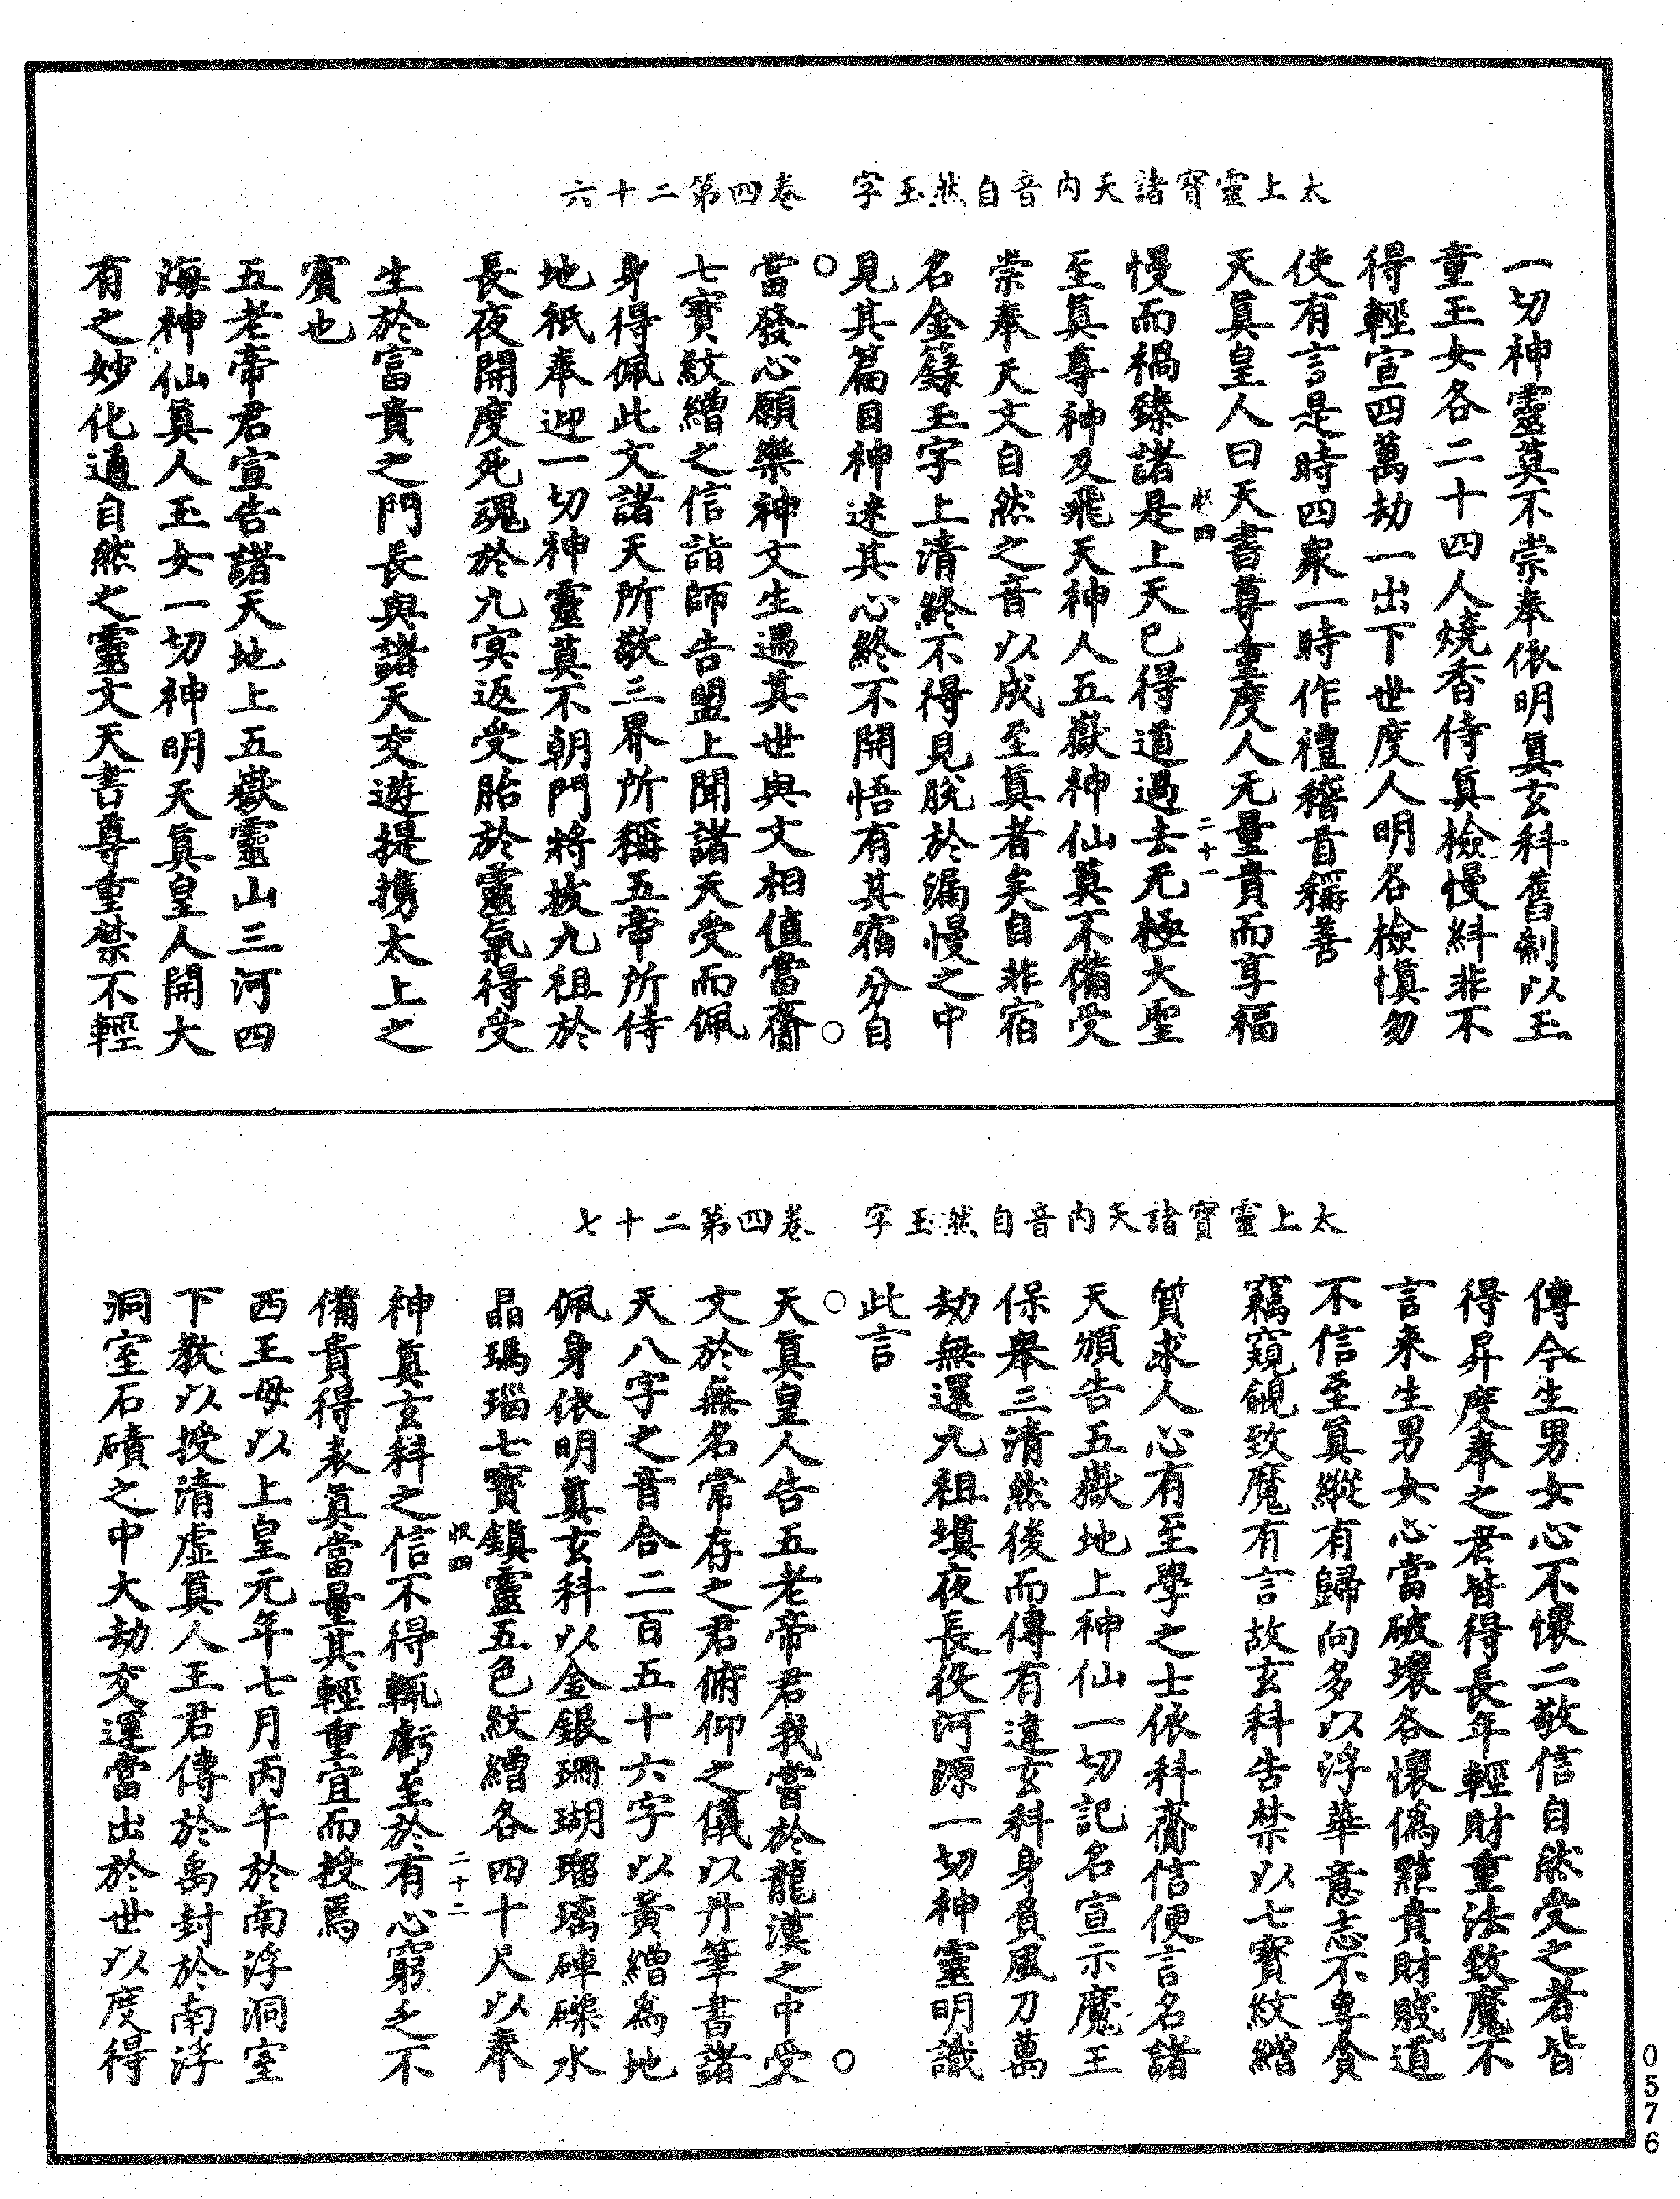 太上靈寶諸天內音自然玉字　卷四第二十六
一切神靈莫不崇奉依明眞玄科舊制以玉
童玉女各二十四人燒香侍眞檢慢糾非不
得輕宣四萬劫一出下世度人明各檢愼勿
使有言是時四衆一時作禮稽首稱善
天眞皇人曰天書尊重度人无量貴而享福
二十一
慢而禍臻諸是上天已得道過去无極大聖
至眞尊神及飛天神人五嶽神仙莫不備受
崇奉天文自然之音以成至眞者矣自非宿
名金籙玉字上清終不得見脫於漏慢之中
見其篇目神迷其心終不開悟有其宿分自
當發心願樂神文生遇其世與文相值當齋
七寶紋繒之信詣師告盟上聞諸天受而佩
身得佩此文諸天所敬三界所稱五帝所侍
地祇奉迎一切神靈莫不朝門將拔九祖於
長夜開度死魂於九冥返受胎於靈氣得受
生於富貴之門長與諸天交遊提携太上之
賓也
五老帝君宣告諸天地上五嶽靈山三河四
海神仙眞人玉女一切神明天眞皇人開大
有之妙化通自然之靈文天書尊重禁不輕
太上靈寶諸天內音自然玉字　卷四第二十七
傳令生男女心不懷二敬信自然受之者皆
得昇度奉之君皆得長年輕財重法致魔不
言來生男女心當破壞各懷僞雖貴財賤道
不信至眞縱有歸向多以浮華意志不專貪
竊窺覦致魔有言故玄科告禁以七寶紋繒
質求人心有至學之士依科齋信便言名諸
天頒告五嶽地上神仙一切記名宣示魔王
保舉三清然後而傳有違玄科身負風刀萬
劫無還九祖塡夜長役河源一切神靈明識
此言
天眞皇人告五老帝君我嘗於龍漢之中受
文於無名常存之君俯仰之儀以丹筆書諸
天八字之音合二百五十六字以黃繒爲地
佩身依明眞玄科以金銀珊瑚瑠璃硨磲水
晶瑪瑙七寶鎮靈五色紋繒各四十尺以奉
二十二
神眞玄科之信不得輒虧至於有心窮乏不
備貴得表眞當量其輕重宜而授焉
西王母以上皇元年七月丙午於南浮洞室
下教以授清虛眞人王君傳於禹封於南浮
洞室石磧之中大劫交運當出於世以度得
0576